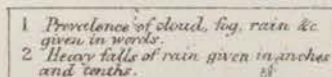 1 Prevalence of cloud, fog, rain &c
given in words.
2 Heavy falls of rain given in inches
and tenths.